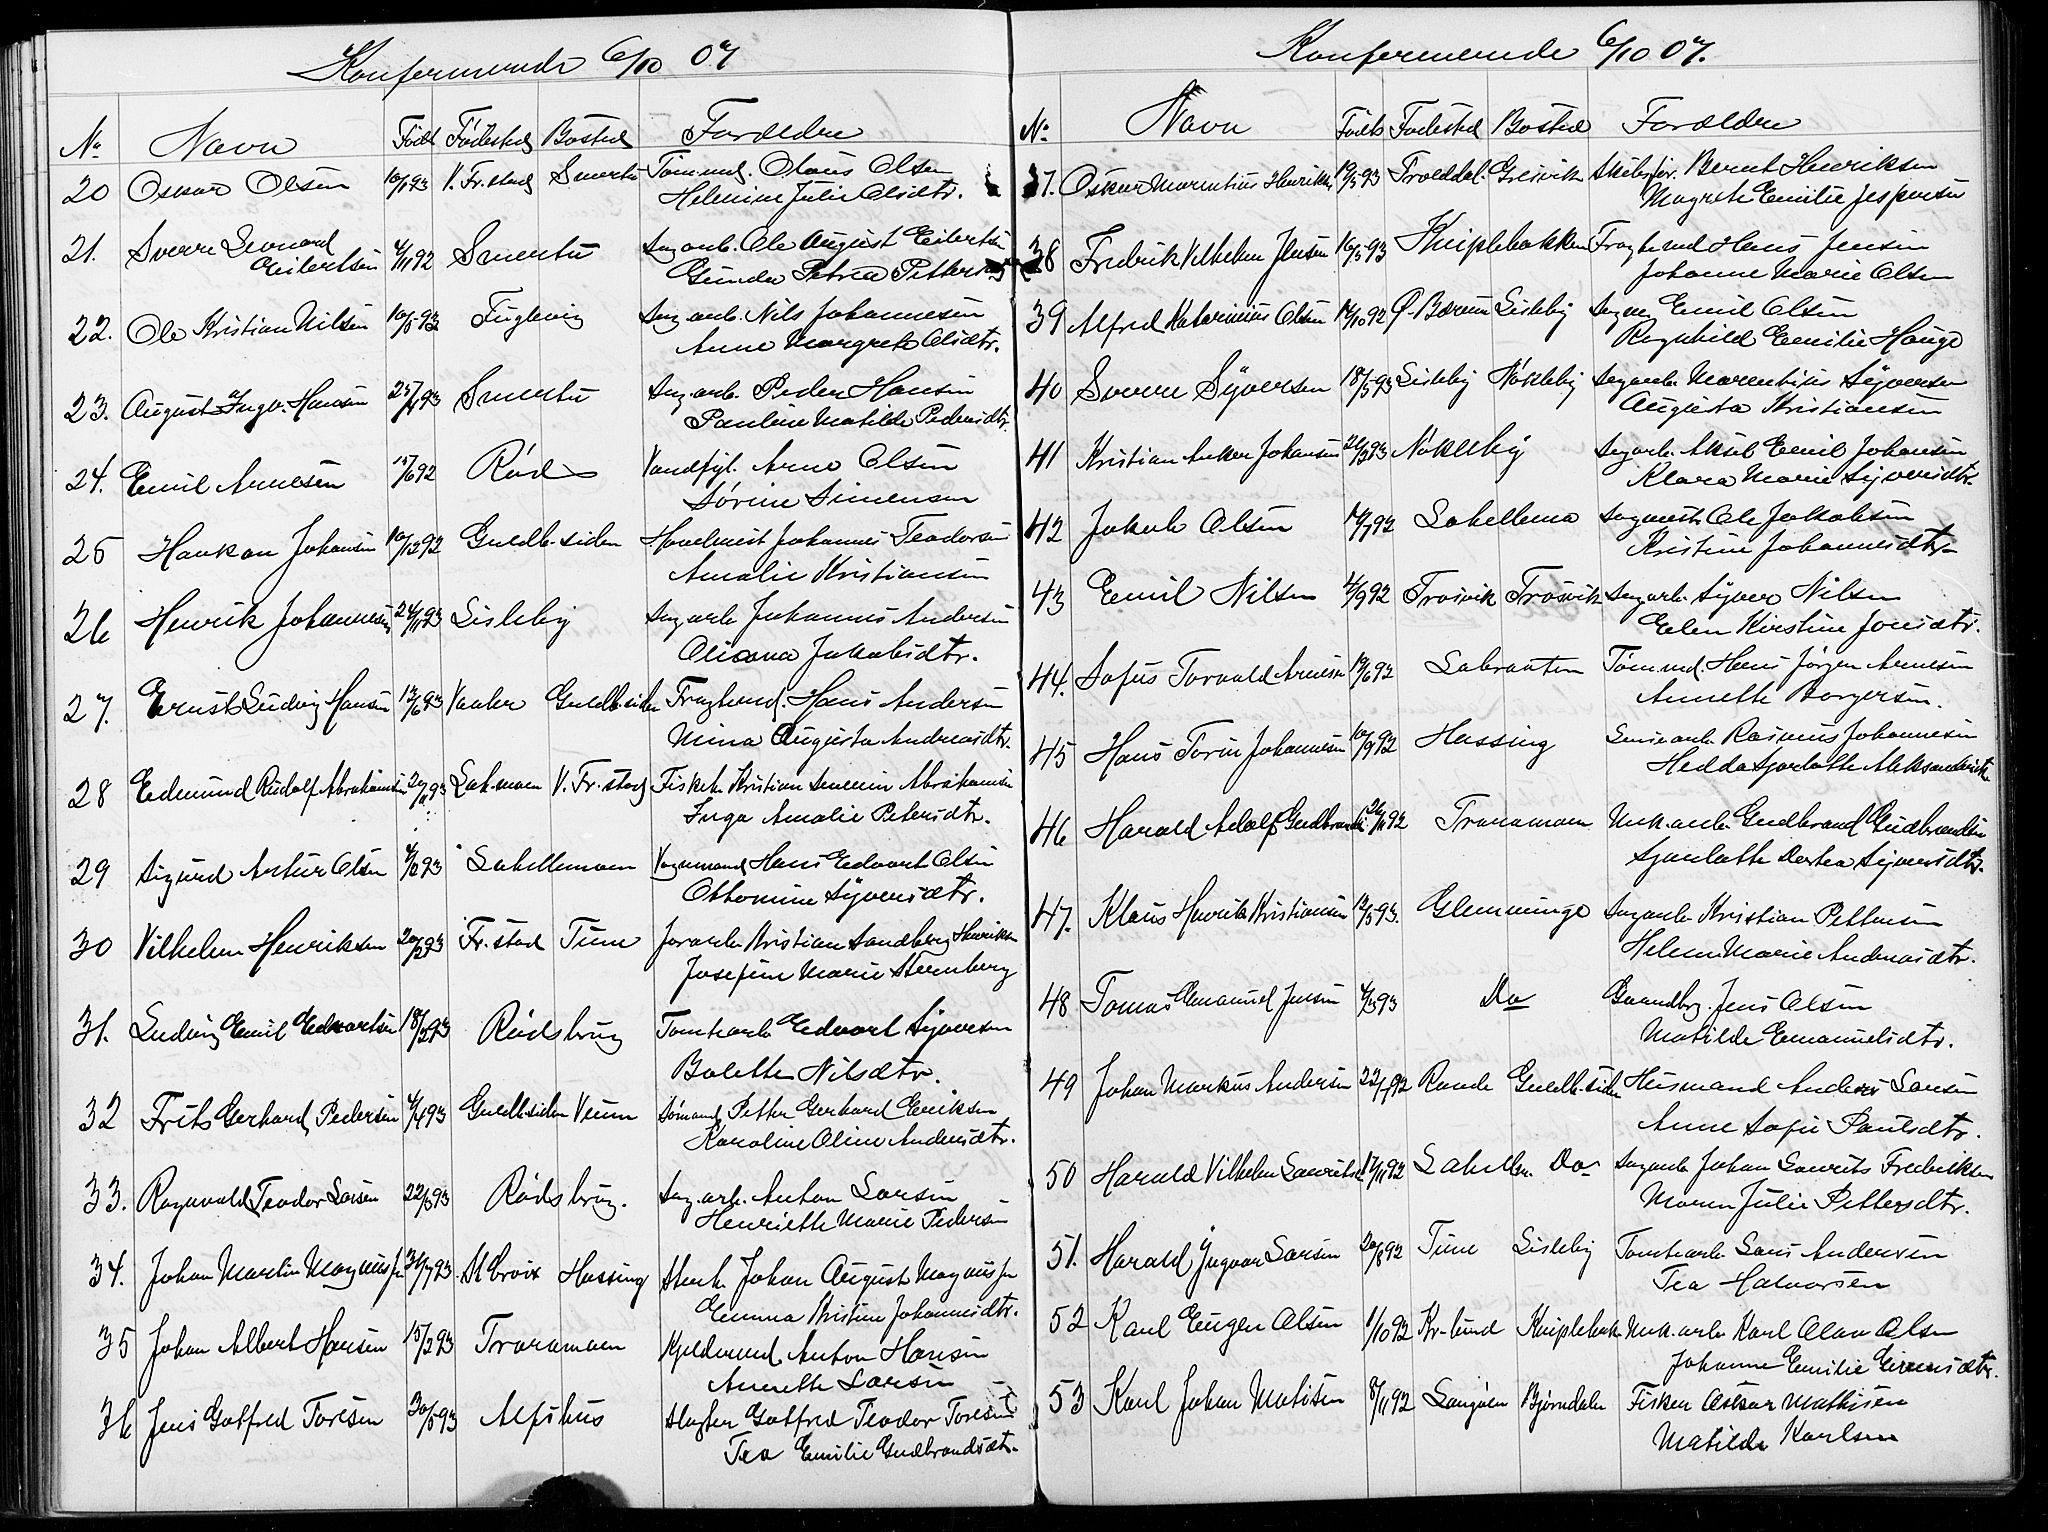 Konfermende 6/10 07
No Navn Født Fødested Bosted Foreldre
20 Oskar Olsen 10/1 93 V. Fr.stad Smertu Tømmd. Olaus Olsen
Helenine Julie Olsdtr.
21. Sverre Leonard Sagarb. Ole August Eilertsen
Eilertsen 4/11 92 Smertu Gunda Petrea Pettersen
22. Ole Kristian Nilsen 10/5 93 Fuglevig Sagarb. Nils Johannesen
Anne Margrete Olsdtr.
23. August Ingv. Hansen 25/4 93 Smertu Sagarb. Peder Hansen
Pauline Matilde Pedersdtr.
24. Emil Arnesen 15/6 92 Rød Vandfgl. Arne Olsen
Sørine Simensen
25 Haakon Johansen 10/12 92 Guldb.siden Høvelmest Johannes Teodorsen
Amalie Kristiansen
26 Henrik Johannesen 24/11 93 Lisleby Sagarb Johannes Andersen
Oliana Jakobsdtr.
27. Ernst Ludvig Hansen 13/6 93 Vaaler Guldb.siden Fragtmd. Hans Andersen
Mina Augusta Andreasdtr.
28 Edmund Rudolf Abrahamsen 20/11 93 Lahmoen V. Fr.stad Fiskeh Kristian Severin Abrahamsen
Inga Amalie Petersdtr.
29 Sigurd Artur Olsen 4/2 93 Lahellemoen Vognmand Hans Edvart Olsen
Ottomine Syversdtr.
30 Vilhelm Henriksen 20/2 93 Fr.stad Tune Jernarb Kristian Sandberg Henriksen
Josefine Marie Sternberg
31. Ludvig Emil Edvartsen 18/2 93 Rødsbrug Tomtearb Edvart Syversen
Bolette Nilsdtr.
32 Frits Gerhard Pedersen 4/4 93 Guldb.siden Veum Sømand Petter Gerhard Eriksen
Karoline Oline Andersdtr.
33. Ragnvald Teodor Larsen 22/3 93 Rødsbrug. Sag.arb. Anton Larsen
Henriette Marie Pedersen
34. Johan Martin Magnusen 31/7 93 St Croix Hassing Stenh. Johan August Magnusen
Emma Kristine Johannesdtr.
35 Johan Albert Hansen 15/2 93 Traramoen Kjeldsvend Anton Hansen
Annette Larsen
36 Jens Gotfred Toresen 30/5 93 Alfshus Slagter Gotfred Teodor Toresen
Tea Emilie Gudbrandsdtr.
Konfermende 6/10 07.
No Navn Født Fødested Bosted Forældre
37. Oskar Marentius Henriks. 19/3 93 Græsvik Skibsfør. Bernt Henriksen
Magrete Emilie Jespersen
38 Fredrik Vilhelm Jensen 16/5 93 Kniplebakken Fragtmd Hans Jensen
Johanne Marie Olsen
39 Alfred Katarinius Olsen 14/10 92 Ø. Bærum Lisleby Emil Olsen
Ragnhild Emilie Hauge
40 Sverre Syversen 18/5 93 Lisleby Nøkleby Sagarb. Marentius Syversen
Augusta Kristiansen
41 Kristian Anker Johansen 26/2 93 Nøkleby Sagarb. Aksel Emil Johansen
Klara Marie Syversdtr.
42 Jakob Olsen 14/7 92 Lahellemo Sagmest Ole Jakobsen
Kristine Johannesdtr
43 Emil Nilsen 4/9 92 Trosvik Trosvik Sagarb. Syver Nilsen
Elen Kirstine Jonsdtr.
44. Sofus Torvald Arnesen 19/6 92 Labraaten Tømmd. Hans Jørgen Arnesen
Annette Borgersen.
45 Hans Torin Johannesen 10/9 92 Hassing Smiearb. Rasmus Johannesen
Hedda Sjarlotte Aleksandersdtr
46 Harald Adolf Gudbrands. 26/11 92 Traramoen Mek.arb. Gudbrand Gudbrandsen
Sjarlotte Dortea Syversdtr.
47. Klaus Henrik Kristiansen 12/5 93. Glemminge Sagarb Kristian Pettersen
Helene Marie Andreasdtr.
48 Tomas Emanuel Jensen 4/3 93 Do Jens Olsen
Matilde Emanuelsdtr.
49 Johan Markus Andersen 22/7 92 Raade Guldb.siden Husmand Anders Larsen
Anne Sofie Paulsdtr.
50 Harald Vilhelm Lauritsen 17/11 92 Lahellm. Do Sagarb Johan Laurits Fredriksen
Maren Julie Pettersdtr.
51. Harald Ingvar Larsen 20/8 92 Tune Lisleby Tomtearb Lars Andersen
Tea Halvorsen
52 Karl Eugen Olsen 11/10 92 Kr.lund Kniplebak. Mek.arb Karl Olav Olsen
Johanne Emilie Evensdtr.
53 Karl Johan Matisen 8/11 92 Langøen Bjørndalen Fisker Oskar Mathisen
Matilde Karlsen